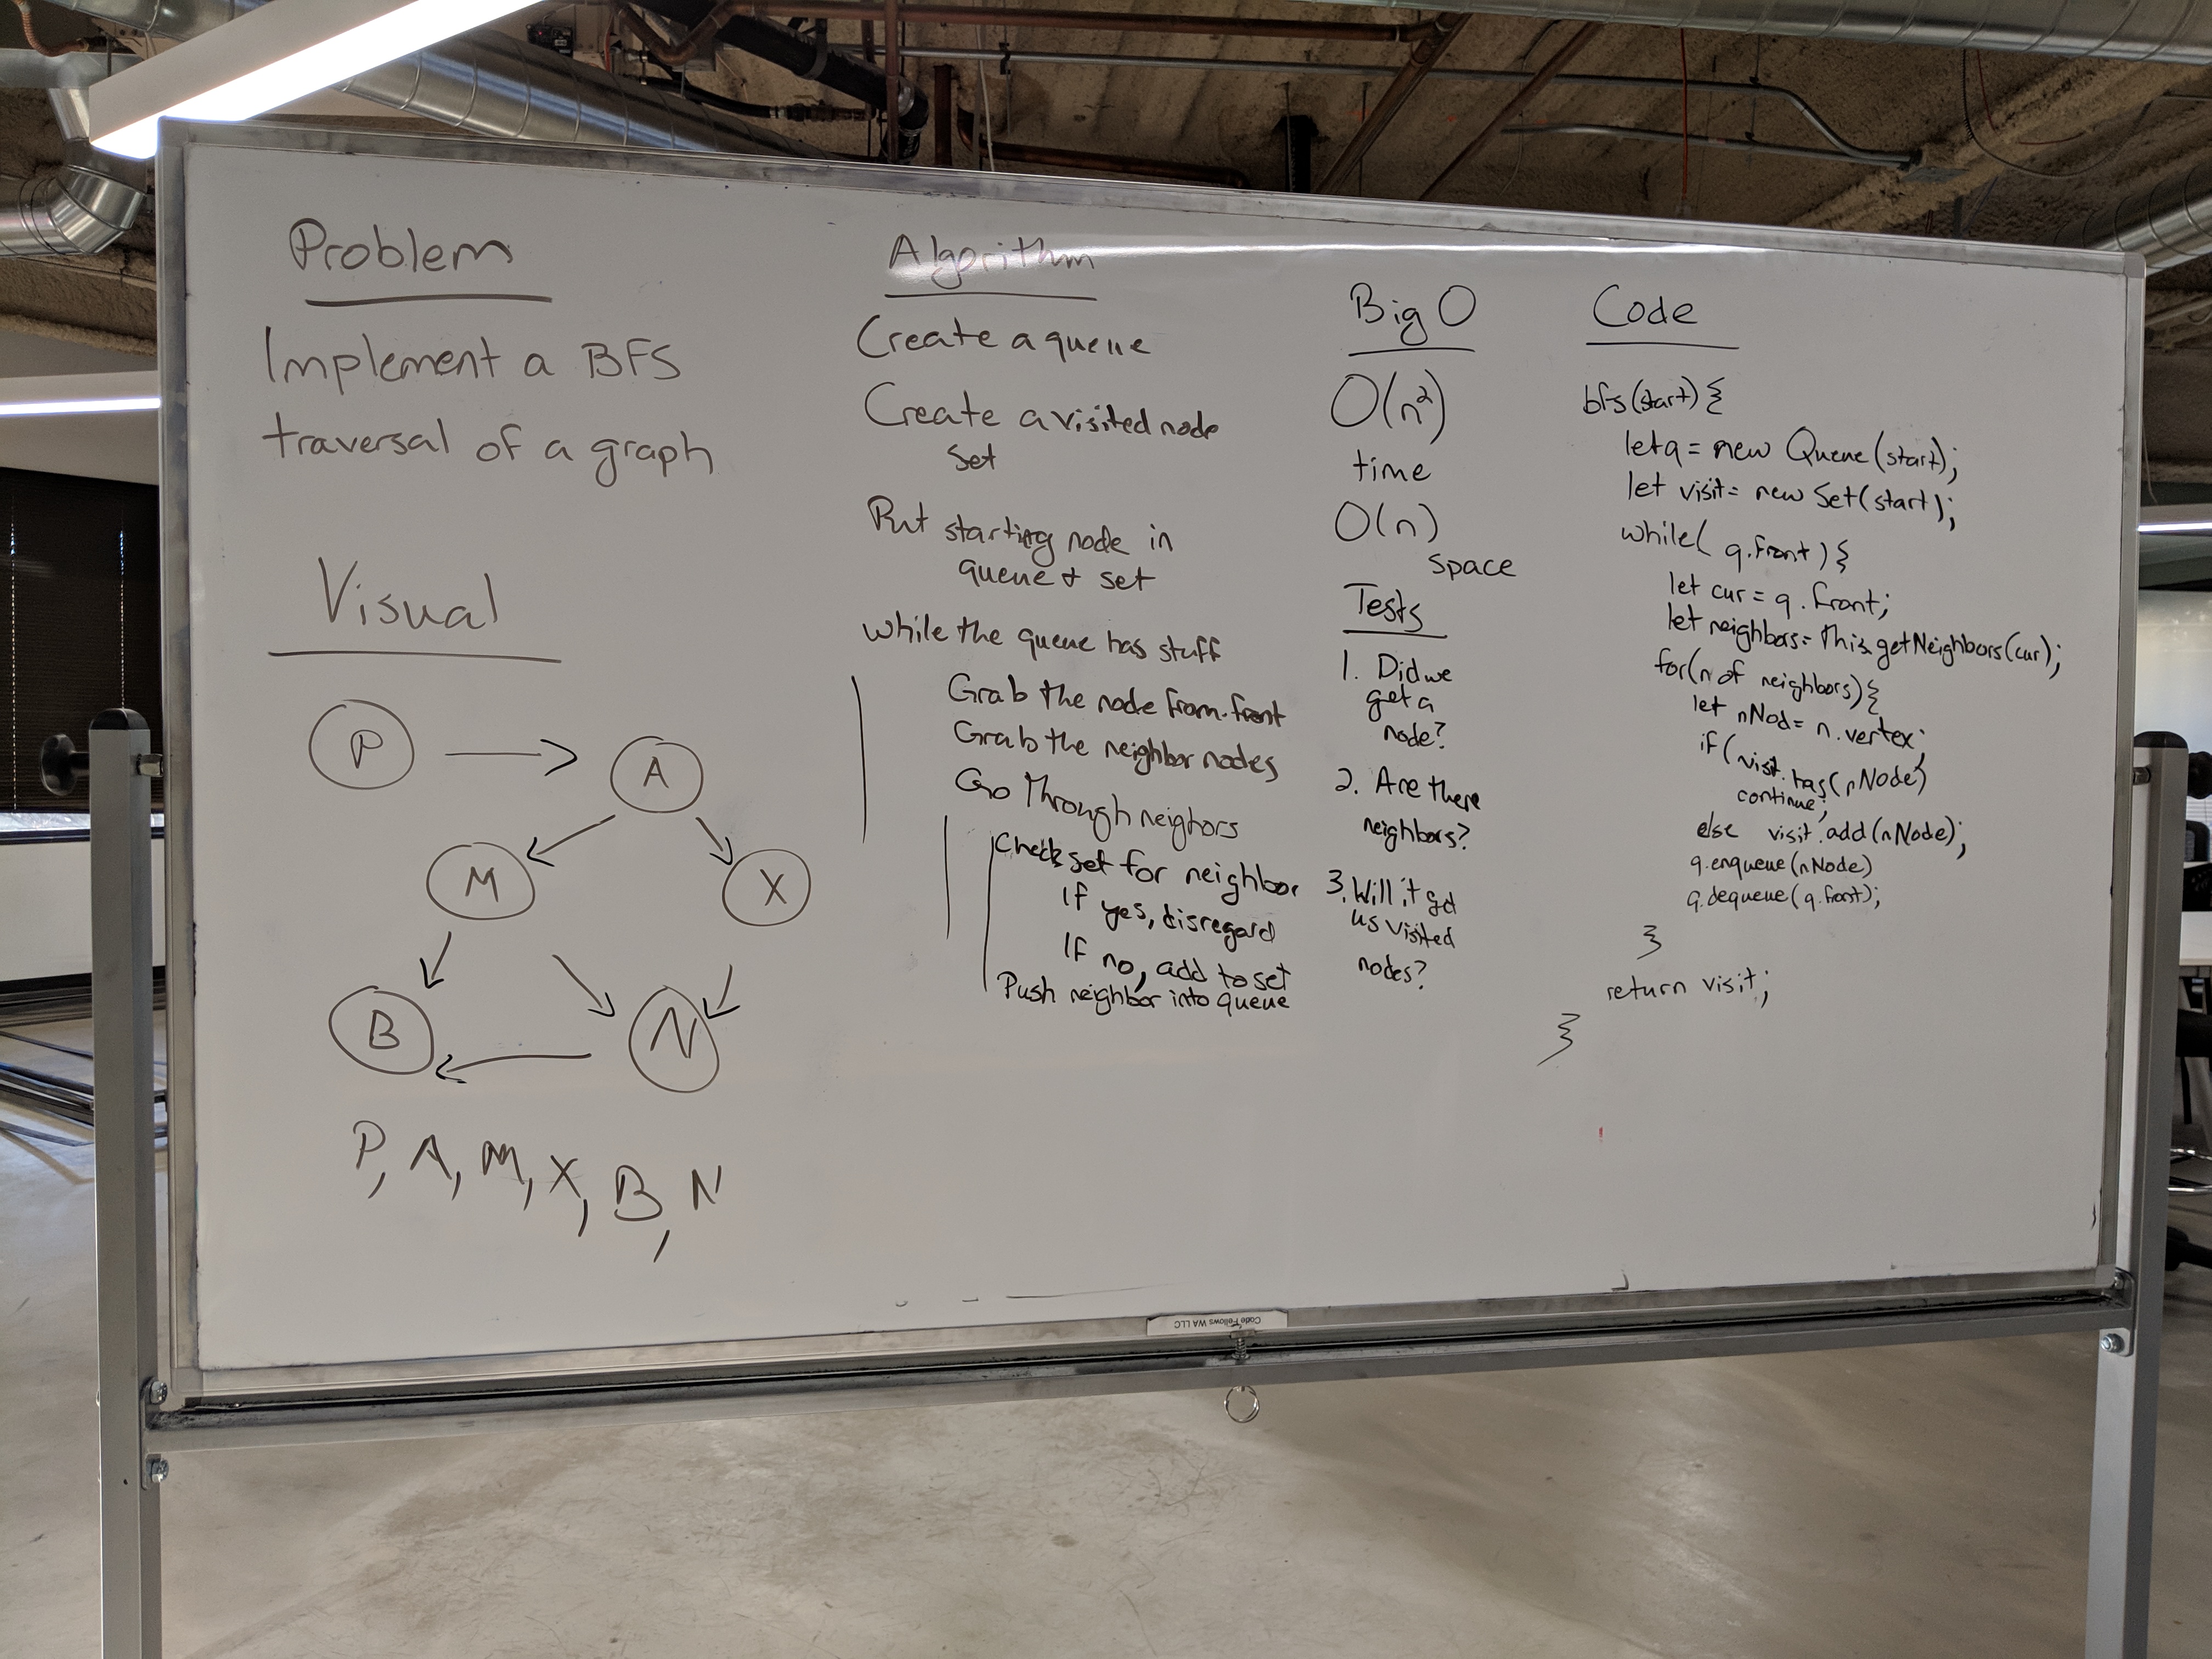 Problem
Implement a BFS
traversal of a graph
Visual
P
A
M
X
B
N
P, A, M, X, B, N
Algorithm
Create a queue
Create a visited node
Set
Put starting node in
queue + set
while the queue has stuff
Grab the node from front
Grab the neighbor nodes
Go Through neigtors
Check set for neighbor
If yes, disregard
If no, add to set
Push neighbor into queue
Big O
O(n²)
time
O(n)
space
Tests
1. Did we
get a
node?
2. Are there
neighbors?
3. Will it get
us visited
nodes?
Code
bfs(start){
let q = new Queue(start);
let visit = new Set(start);
while( q.front ){
let cur = q.front;
let neighbors = this.getNeighbors(cur);
for(n of neighbors){
let nNod = n.vertex;
if(visit.has(nNode)
continue;
else visit.add(nNode);
q.enqueue(nNode)
q.dequeue(q.front);
}
return visit;
}
Code Fellows WA LLC